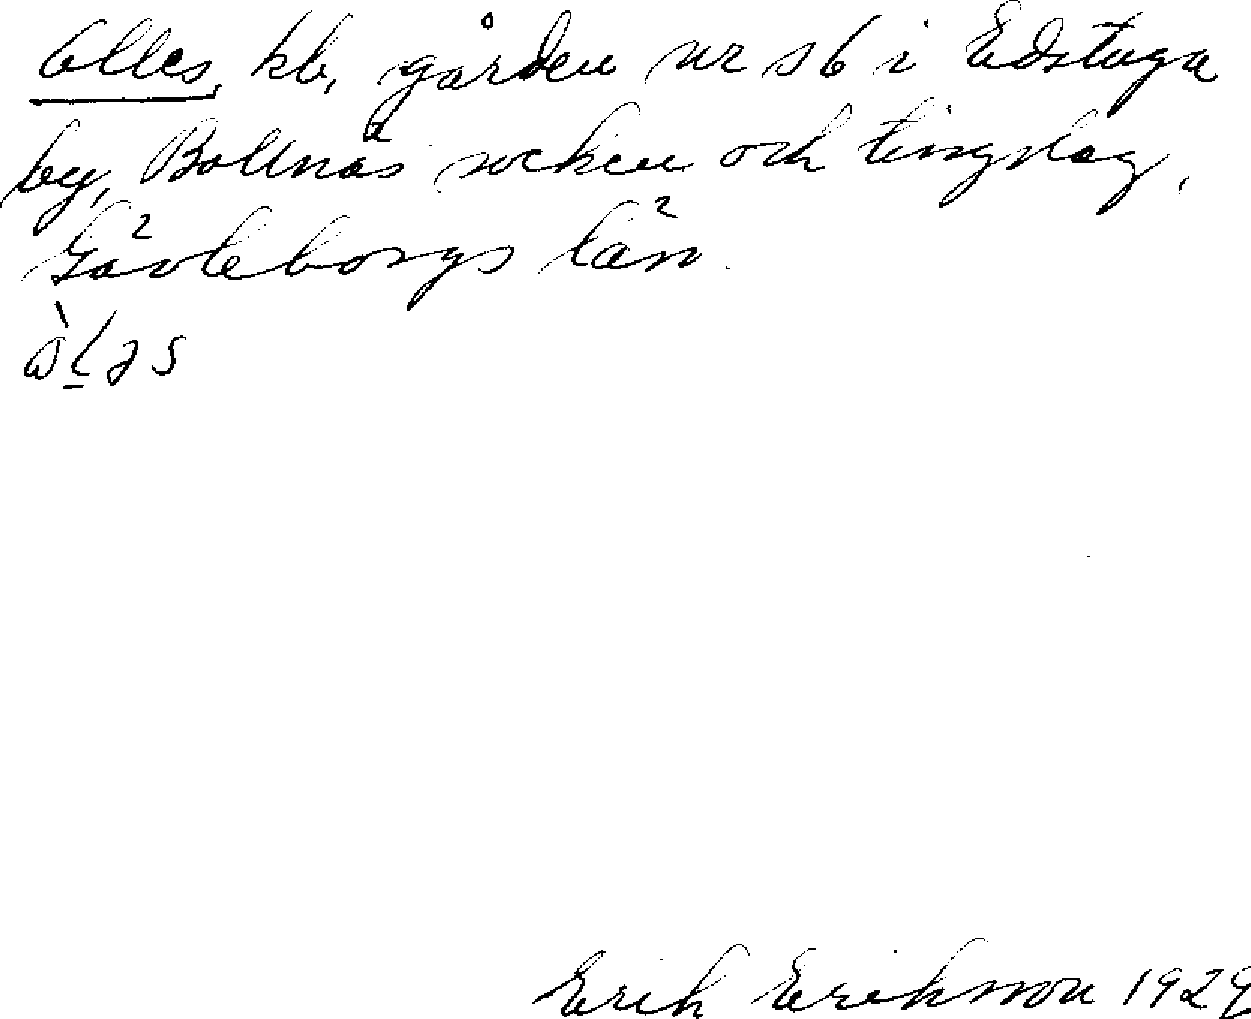 Olles, kb, gården nr 16 i Edstuga
by, Bollnäs socken och tingslag,
Gävleborgs län.
Erik Eriksson 1929